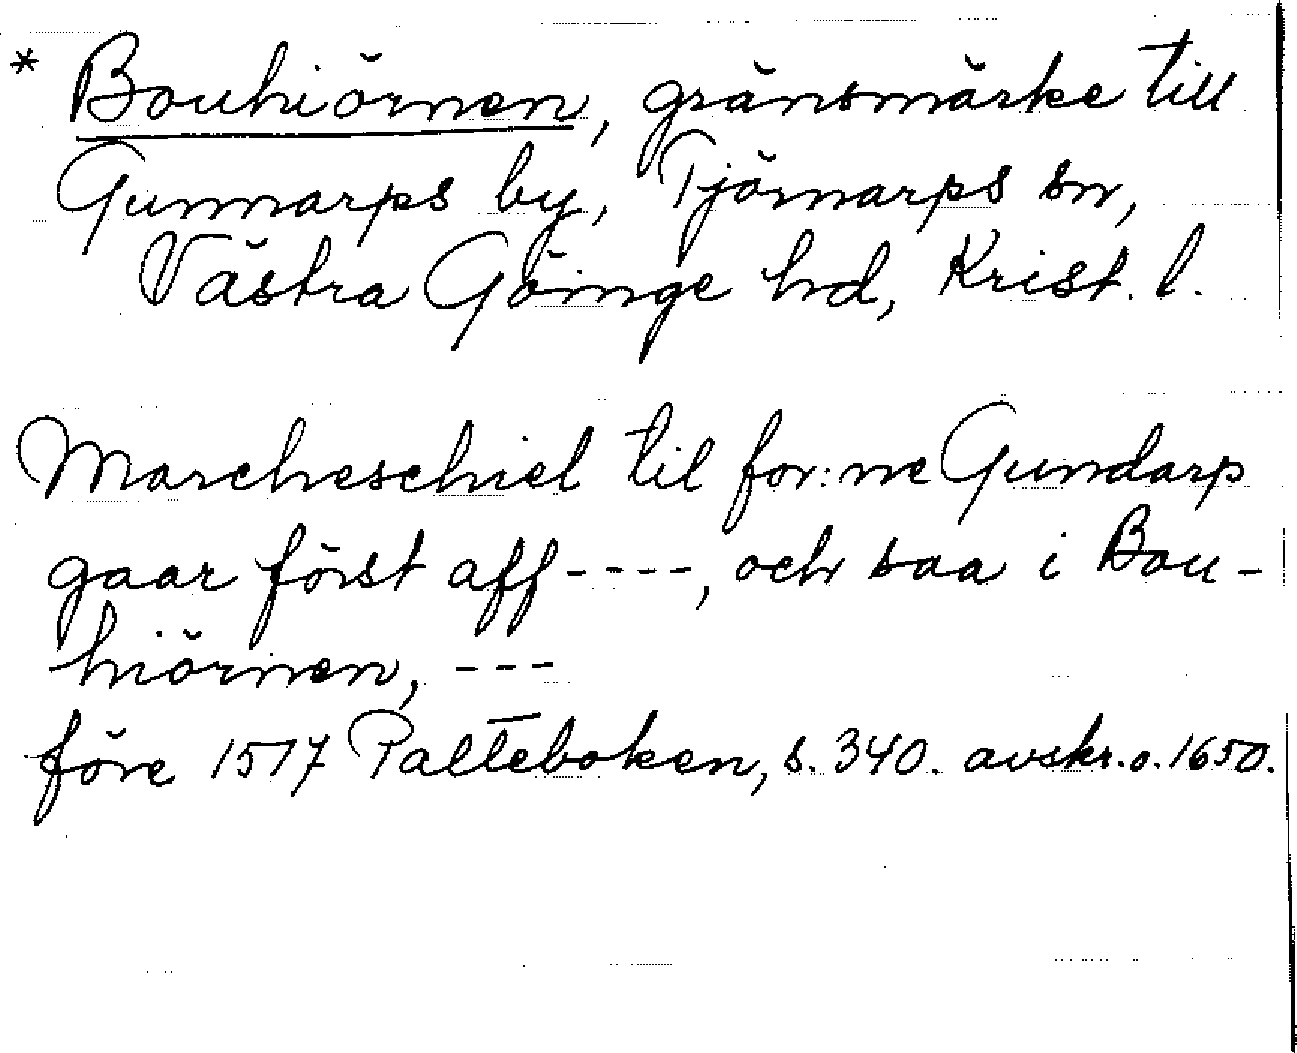 * Bouhiörnen, gränsmärke till
Gunnarps by, Tjörnarps sn,
Västra Göinge hd, Krist. l.
Marcheschiel til for:ne Gundarp
gaar först aff ----, och saa i Bou-
hiörnen, ---
före 1517 Palteboken, s. 340. avskr. o. 1650.